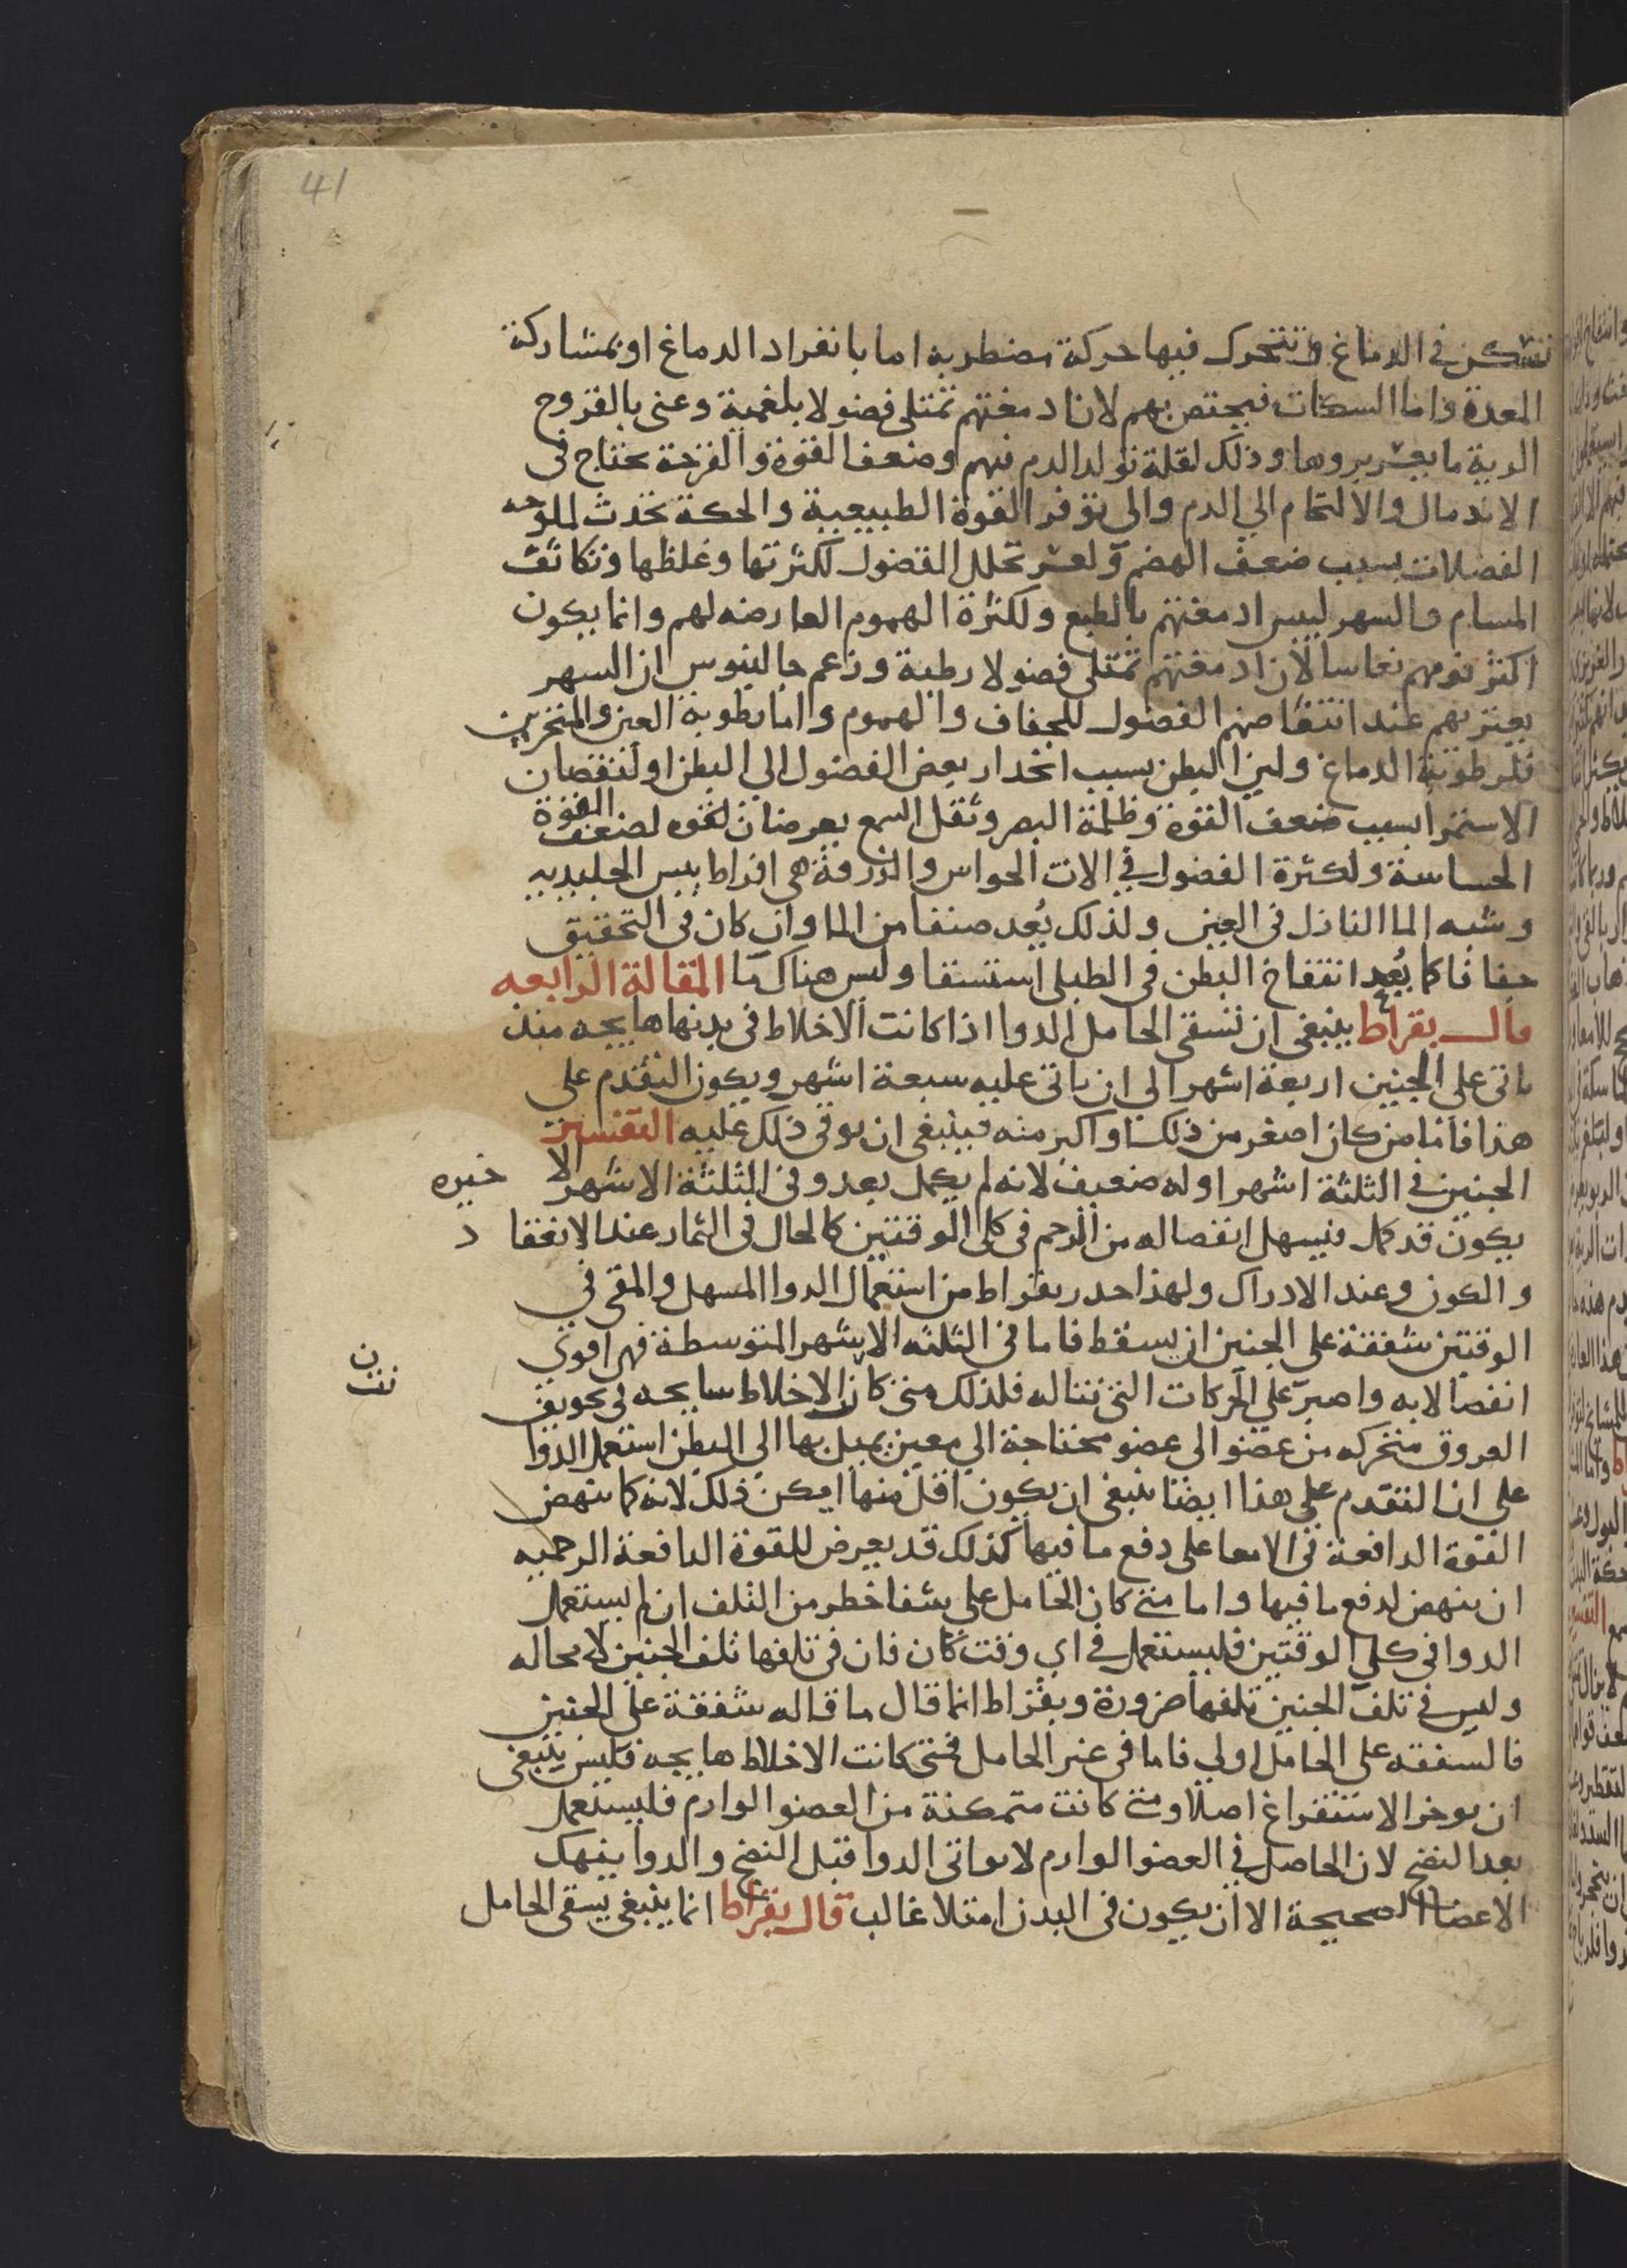 41
تتمكن في الدماغ وتتحرك فيها حركة مضطربة اما بانفراد الدماغ او بمشاركة
المعدة واما السكات فيختص بهم لان ادمغتهم تمتلى فضولا بلغمية وعنى بالقروح
الردية ما يعسر بروها وذلك لقلة تولد الدم فيهم وضعف القوة والقرحة تحتاج في
الاندمال والالتحام الي الدم والى توفر القوة الطبيعية والحكة تحدث لملوحه
الفضلات بسبب ضعف الهضم ولعسر تحلل الفضول لكثرتها وغلظها وتكاثف
المسام والسهر ليبس ادمغتهم بالطبع ولكثرة الهموم العارضه لهم وانما يكون
اكثر نومهم نعاسا لان ادمغتهم تمتلى فضولا رطبة وزعم جالينوس ان السهر
يعتريهم عند انتقاصهم الفضول للجفاف والهموم واما رطوبة العين والمنخرين
فلرطوبة الدماغ ولين البطن بسبب انحدار بعض الفضول الي البطن او لنقصان
الاستمرا بسبب ضعف القوة وظلمة البصر وثقل السمع يعرضان لضعف القوة
الحساسة ولكثرة الفضول في الات الحواس والزرقة هي افراط يبس الجليديه
وشبه الما النازل في العين ولذلك يُعد صنفا من الما وان كان في التحقيق
جفافا كما يُعد انتفاخ البطن في الطبلى استسقا وليس هناك ما المقالة الرابعه
قال بقراط ينبغي ان تسقى الحامل الدوا اذا كانت الاخلاط في بدنها هايجه منذ
ياتى على الجنين اربعة اشهر الى ان ياتى عليه سبعة اشهر ويكون التقدم على
هذا فاما من كان اصغر من ذلك او اكبر منه فينبغى ان يوقي ذلك عليه التفسير
الجنين في الثلثة اشهر اوله ضعيف لانه لم يكمل بعد وفى الثلثة الاشهر الا خيره
يكون قد كمل فيسهل انفصاله من الرحم في كلي الوقتين كالحال في الثمار عند الانعقاد
والكون وعند الادراك ولهذا حدر بقراط من استعمال الدوا المسهل والمقي في
الوقتين شفقة على الجنين ان يسقط فاما في الثلثه الاشهر المتوسطة فهو اقوي
انفصالا به واصبر علي الحركات التي تناله فلذلك متى كان الاخلاط سايحه في تجويف
ن
نت
العروق متحركه من عضو الى عضو محتاجة الي معين يميل بها الي البطن استعمل الدوا
على ان التقدم على هذا ايضا ينبغى ان يكون اقل منها امكن ذلك لانه كما تنهض
القوة الدافعة في الامعا على دفع ما فيها كذلك قد يعرض للقوة الدافعة الرحميه
ان تنهض لدفع ما فيها واما متى كان الحامل على شفا خطر من التلف ان لم يستعمل
الدوا في كلي الوقتين فليستعمل في اي وقت كان فان في تلفها تلف الجنين لا محاله
وليس في تلف الجنين تلفها ضرورة وبقراط انما قال ما قاله شفقة على الجنين
فالشفقه على الحامل اولي فاما في غير الحامل فمتى كانت الاخلاط هايجه فليس ينبغى
ان يوخر الاستفراغ اصلا ومتى كانت متمكنة من العضو الوارم فليستعمل
بعد النضج لان الحاصل في العضو الوارم لا يواتى الدوا قبل النضج والدوا ينهك
الاعضا الصحيحة الا ان يكون في البدن امتلا غالب قال بقراط انما ينبغى يسقى الحامل